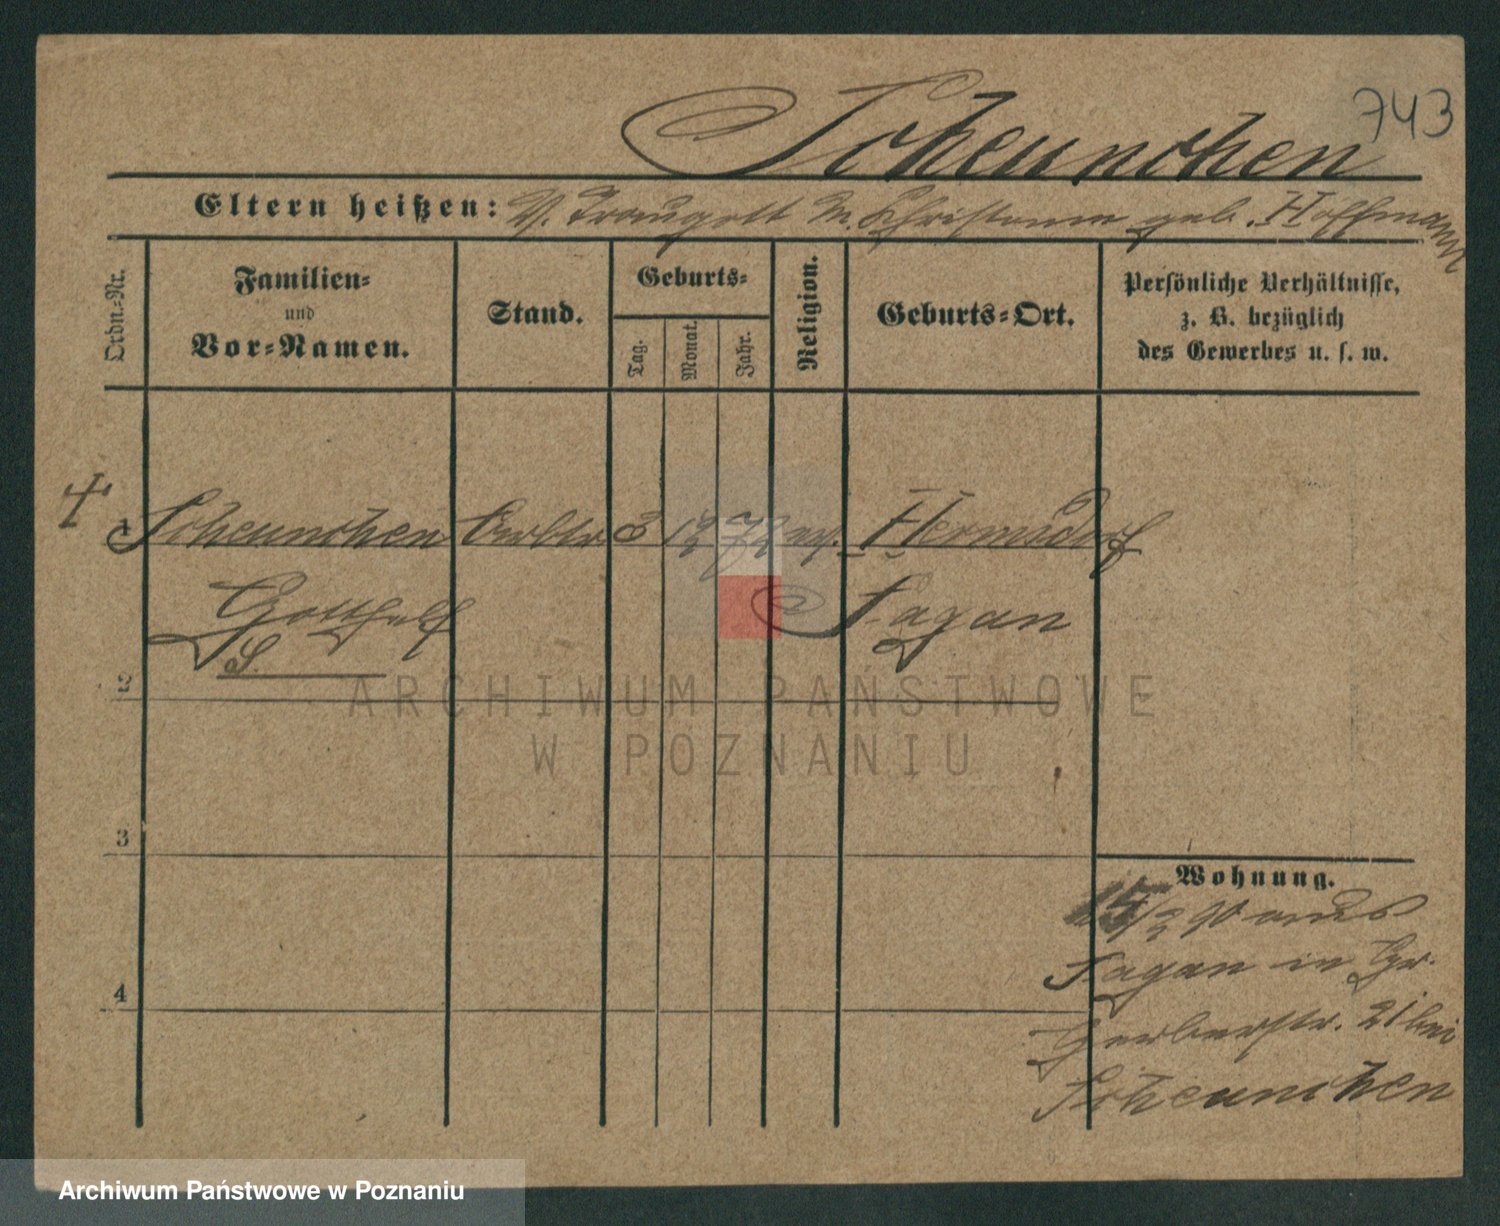 743
Scheunchen
Eltern heißen: V. Traugott M. Christiane geb. Hoffmann
Ordn.-Nr.
Familien-
und
Vor-Namen.
Stand.
Geburts-
Tag.
Monat.
Jahr.
Religion.
Geburts-Ort.
Persönliche Verhältnisse,
z. B. bezüglich
des Gewerbes u. s. w.
1 Scheunchen 3 12 72 ev. Hermsdorf
Gotthelf Sagan
S.
2
ARCHIWUM PAŃSTWOWE
W POZNANIU
3
Wohnung.
15/2 90 aus
Sagan in Gr.
4
Gerberstr. 21 bei
Scheunchen
Archiwum Państwowe w Poznaniu